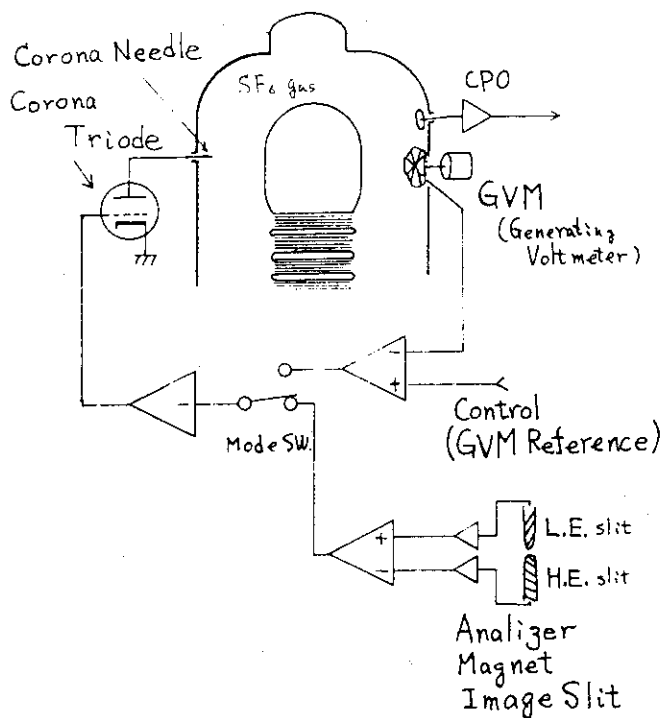 Corona Needle
Corona
Triode
SF6 gas
CPO
GVM
(Generating
Voltmeter)
-
+
Control
(GVM Reference)
-
Mode SW.
+
-
L.E. slit
H.E. slit
Analizer
Magnet
Image Slit